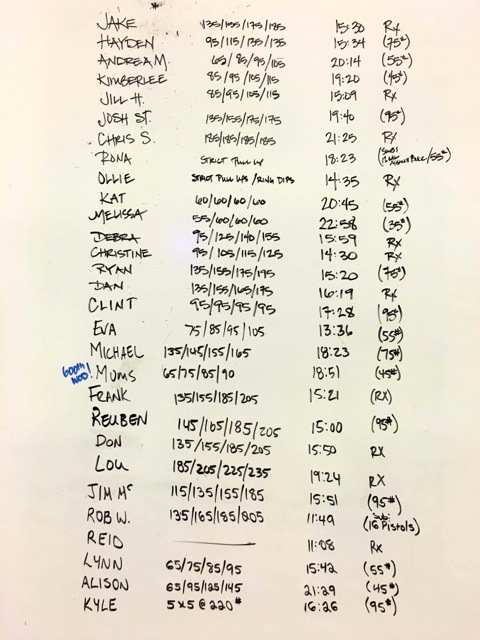 JAKE 135/155/175/185 15:30 Rx
HAYDEN 95/115/135/135 15:34 (75#)
ANDREA M. 65/85/95/105 20:14 (55#)
KIMBERLEE 85/95/105/115 19:20 (45#)
JILL H. 85/95/105/115 15:09 Rx
JOSH ST. 135/155/175/175 19:40 (95#)
CHRIS S. 185/185/185/185 21:25 Rx
RONA STRICT PULL UP 18:23 /55#)
OLLIE STRICT PULL UPS /RING DIPS 14:35 Rx
KAT 60/60/60/60 20:45 (55#)
MELISSA 55/60/60/60 22:58 (35#)
DEBRA 95/125/140/155 15:59 Rx
CHRISTINE 95/105/115/125 14:30 Rx
RYAN 135/155/175/195 15:20 (75#)
DAN 135/155/165/175 16:19 Rx
CLINT 95/95/95/95 17:28 (95#)
EVA 75/85/95/105 13:36 (55#)
MICHAEL 135/145/155/165 18:23 (75#)
600th WOD! MUMS 65/75/85/90 18:51 (45#)
FRANK 135/155/185/205 15:21 (RX)
REUBEN 145/165/185/205 15:00 (95#)
DON 135/155/185/205 15:50 RX
LOU 185/205/225/235 19:24 RX
JIM Mc 115/135/155/185 15:51 (95#)
ROB W. 135/165/185/205 11:49 (sub: 16 Pistols)
REID 11:08 Rx
LYNN 65/75/85/95 15:42 (55#)
ALISON 65/95/125/145 21:29 (45#)
KYLE 5x5@220# 16:26 (95#)